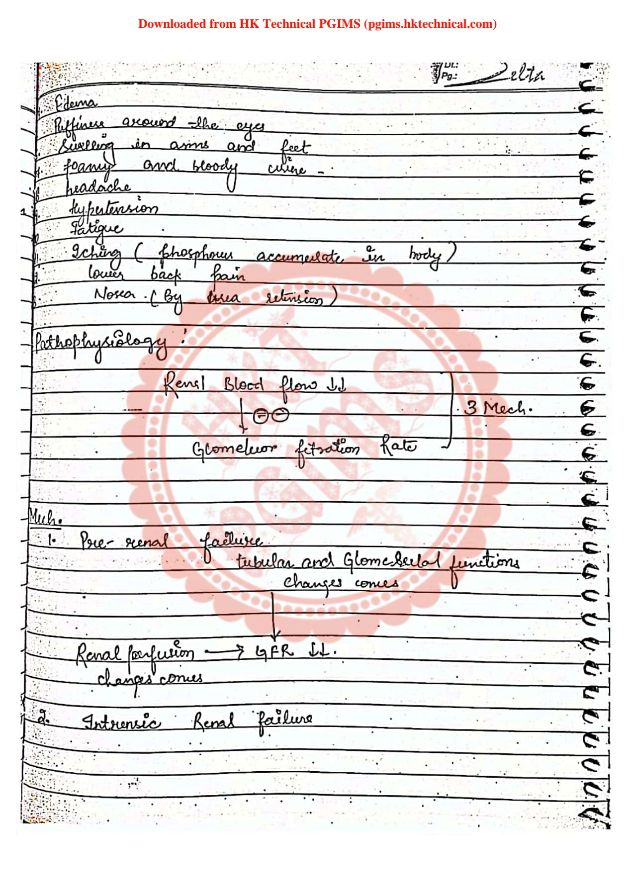 Downloaded from HK Technical PGIMS (pgims.hktechnical.com)
Pg.: elta
Edema
Puffiness around the eyes
Swelling in arms and feet
foamy and bloody urine -
headache
Hypertension
Fatigue
Iching ( phosphorus accumulate in body )
lower back pain
Nosea. ( By urea retension )
Pathophysiology :
Renal Blood flow ↓↓
3 Mech.
↓ ⊖⊖
Glomeluor fitration Rate
Mech.
1. Pre-renal failure
tubular and Glomerulal functions
changes comes
↓
Renal perfusion → GFR ↓↓.
changes comes
2. Intrensic Renal failure
HKT
PGIMS